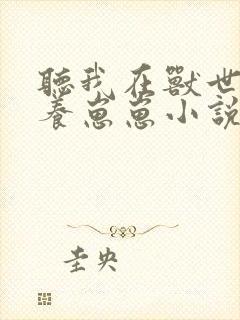 聽我在獸世
養崽崽小說
圭央